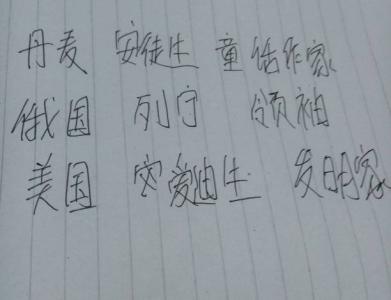 丹麦 安徒生 童话作家
俄国 列宁 领袖
美国 爱迪生 发明家